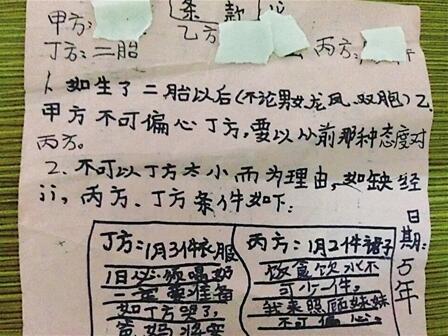 条款
甲方:
乙方
丙方:
丁方:二胎
1、如生了二胎以后(不论男女龙凤、双胞)乙
甲方不可偏心丁方,要以从前那种态度对
丙方。
2、不可以丁方太小而为理由,如缺经
济,丙方、丁方条件如下:
丁方:1月3件衣服
1日必须喝奶
一定要准备
丙方:1月2件裙子
饮食饮水不
可少一件。
我来照顾妹妹
不可偏心。
日期:5年